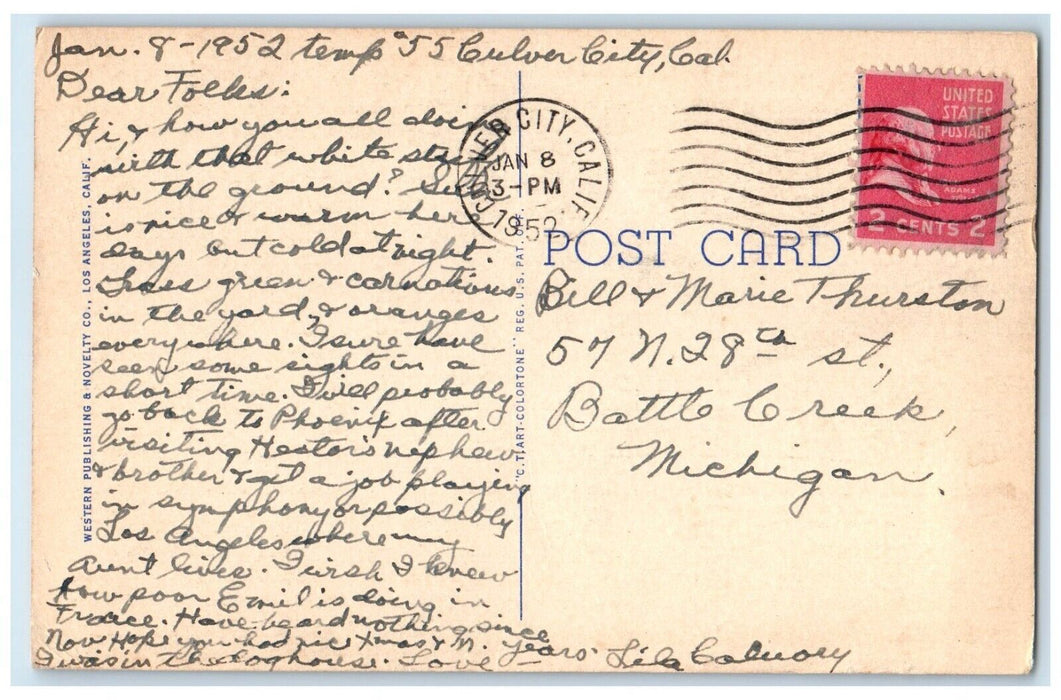 Jan. 8-1952 temp °55 Culver City, Cal.
Dear Folks:
Hi, & how you all doing
with that white stuff
on the ground? Sun
is nice & warm here
days but cold at night.
Trees green & carnations
in the yard, & oranges
everywhere. I sure have
seen some sights in a
short time. I will probably
go back to Phoenix after
visiting Hestor's nephew
& brother & get a job playing
in symphony or possibly
Los Angeles where my
Aunt lives. I wish I knew
how poor Emil is doing in
France. Have heard nothing since
Nov. Hope you had nice Xmas & N. Years.
I was in the doghouse. Love — Lila
CULVER CITY, CALIF.
JAN 8
3-PM
1952
UNITED
STATES
POSTAGE
ADAMS
2 CENTS 2
POST CARD
Bill & Marie Thurston
57 N. 28th st.,
Battle Creek,
Michigan.
WESTERN PUBLISHING & NOVELTY CO., LOS ANGELES, CALIF.
"C.T. ART-COLORTONE" REG. U.S. PAT.